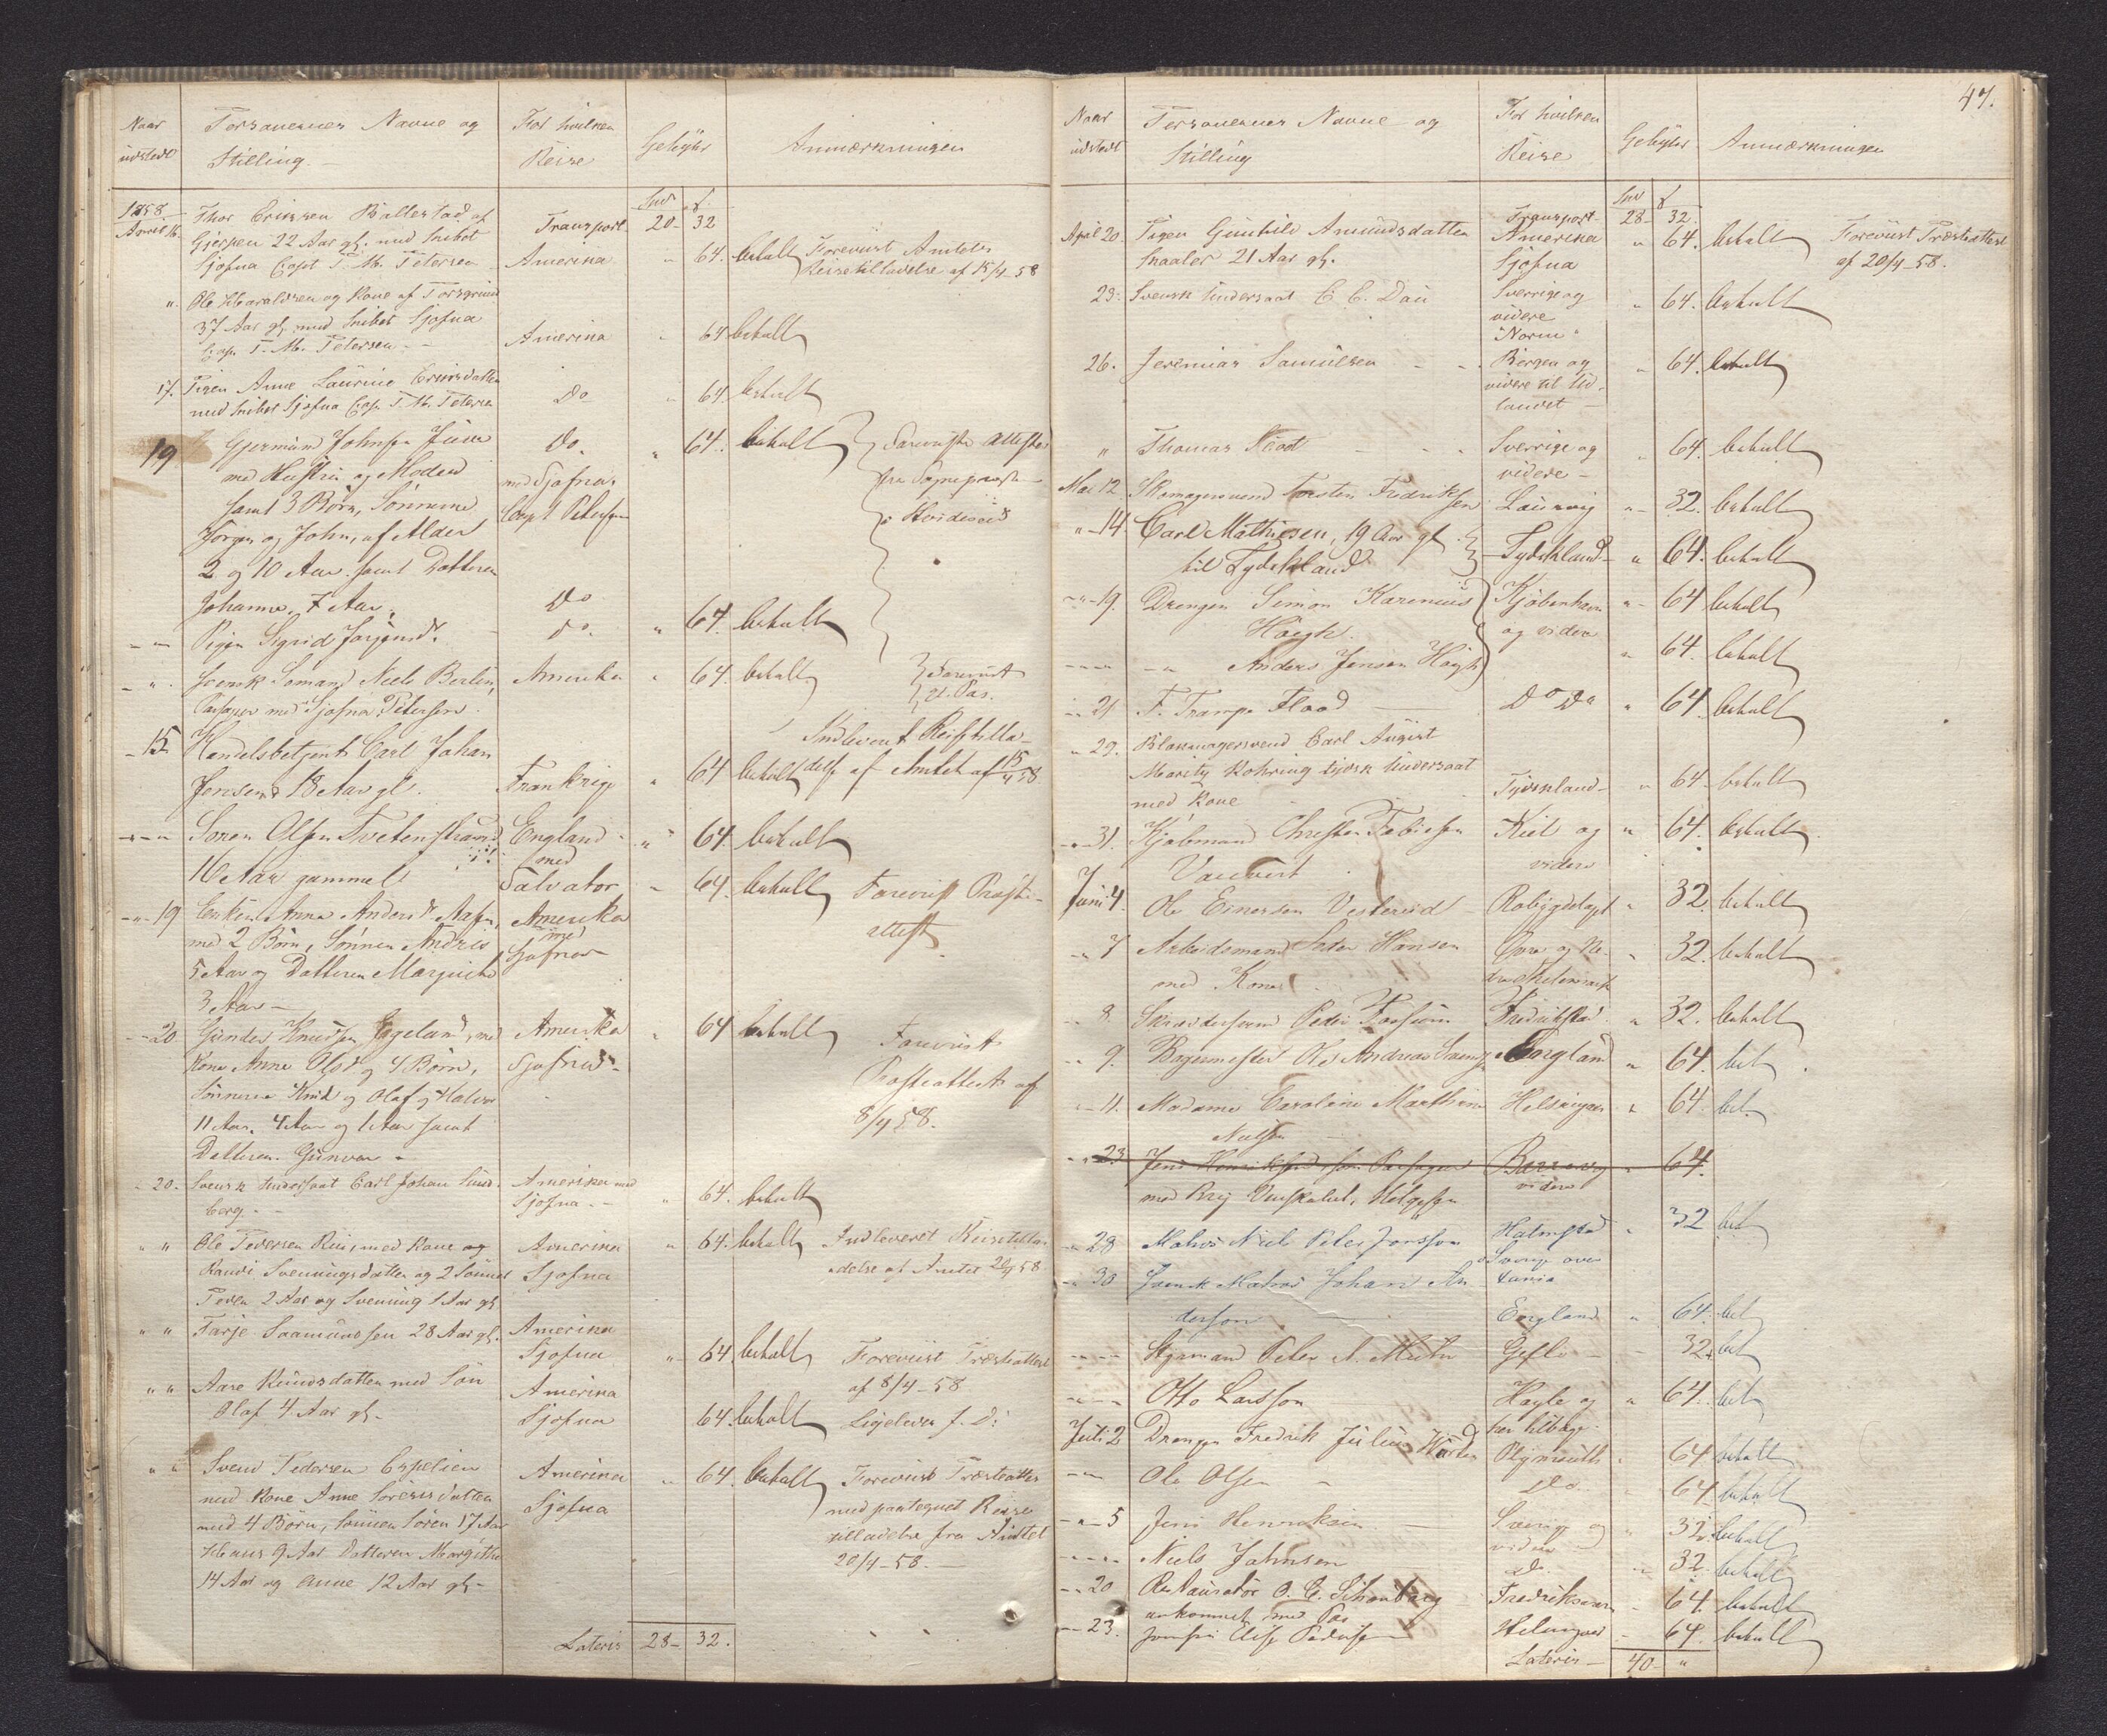 Naar udstedt | Personernes Navne og Stilling. | For hvilken Reise | Gebyhr | Anmærkninger
Spd ß
1858
April 16. Thor Erikssen Ballestad af Transport 20 - 32
Gjerpen 22 Aar gl. med Skibet
Sjofna Capt P. M. Petersen Amerika " 64. betalt Foreviist Amtets
Reisetilladelse af 15/4-58
". Ole Haraldsen og Kone af Porsgrund
37 Aar gl. med Skibet Sjofna
Cap. P. M. Petersen Amerika " 64 betalt
17. Pigen Anne Laurine Eriksdatter
med Skibet Sjofna Cap. P. M. Petersen Do " 64 betalt
19 Gjermund Johnsen Juve Do. " 64. betalt Foreviste Attester
med Hustru og Moder med Sjofna. fra Sognepræsten
samt 3 Børn, Sønnerne Capt Petersen i Hvideseid
Jørgen og John, af Alder
2 og 10 Aar samt Datteren
Johanne, 7 Aar. Do
" " Pigen Sigrid Jørgensd. Do. " 64. betalt
" ". Svensk Sømand Niels Berlin, Amerika " 64. betalt Forevist
Passager med Sjofna, Petersen. Pas.
15. Handelsbetjent Carl Johan Indleveret Reisetilla-
Jensen 18 Aar gl. Frankrige " 64 betalt delse af Amtet af 15/4 58
" " Søren Olsen Tvetenstrand England " 64. betalt
16 Aar gammel med
Salvator " 64. betalt Forevist Præste-
" 19 Enken Anna Andersd. Amerika attest
med 2 Børn, Sønnen Andris med
5 Aar og Datteren Margrethe Sjofna
3 Aar -
20. Gunder Knudsen Eggeland, med Amerika " 64 betalt Forevist
Kone Anne Olsd og 4 Børn, Sjofna Præsteattest af
Sønnerne Knud og Olaf og Halvor 8/4 58.
11 Aar, 4 Aar og 1 Aar samt
Datteren Gunvor -
20. Svensk Undersaat Carl Johan Lund- Amerika med
berg - Sjofna " 64. betalt
" " Ole Pedersen Rui, med Kone og Amerika " 64. betalt Indleveret Reisetilla-
Svenningsdatter og 2 Sønner Sjofna delse af Amtet 20/4 58
Peder 2 Aar og Svenning 1 Aar gl.
" " Tarje Saamundsen 28 Aar gl. Amerika
Sjofna " 64. betalt Foreviist Præsteattest
af 8/4-58
" " Aase Knudsdatter med Søn Amerika
Olaf 4 Aar gl. Sjofna 64. betalt Ligeledes
" " Svend Pedersen Espelien Amerika " 64. betalt Foreviist Præsteattest
med Kone Anne Sørensdatter Sjofna med paategnet Reise
med 4 Børn, Sønnen Søren 17 Aar tilladelse fra Amtet
Hans 9 Aar Datteren Margithe 20/4-58.
14 Aar og Anne 12 Aar gl.
Lateris 28 - 32.
47.
Naar udstedt | Personernes Navne og Stilling | For hvilken Reise | Gebyhr | Anmærkninger
Spd ß
Transport 28 - 32.
April 20. Pigen Gunhild Amundsdatter Amerika " 64. betalt Foreviist Præsteattest
Skaaler 21 Aar gl. Sjofna af 20/4-58.
23. Svensk Undersaat C. C. Dau Sverrige og " 64. betalt
videre
"Norm"
26. Jeremias Samuelsen Bergen og " 64. betalt
videre til Ud-
landet
" Thomas Sverrige og " 64. betalt
videre
Mai 12. Skomagersvend Torsten Fredriksen Laurvig " 32. betalt
" 14. Carl Mathiesen, 19 Aar gl. Tydskland " 64. betalt
til Tydskland
" 19. Drengen Simon Karenius Kjøbenhavn " 64 betalt
Høegh. og videre
" " Anders Jensen Høegh " 64. betalt
" 21 F. Trampe Flood Do Do " 64. betalt
" 29. Blaamagersvend Carl August
Moritz Kohring tydsk Undersaat
med Kone Tydskland " 64 betalt
" 31. Kjøbmand Christen Tobiesen Kiel og " 64. betalt
videre
Juni 4. Ole Einersen Vesteriid Robygdelaget " 32. betalt
" 7 Arbeidsmand Peder Hansen Øvre og Ne- " 32. betalt
med Kone dre Thelemark
" 8. Skræddersvend Peder Fredrikstad " 32. betalt
" 9. Bagermester Ole Andreas England " 64. bet
" 11. Madame Caroline Marthine Helsingør " 64. bet
Nielsen
" 23. Jens Henrik Passager " 64.
med Brig Venskabet, Helgesen videre
" 28 Matros Niels Peter Jonsson Halmstad " 32 bet
" 30 Svensk Matros Johan An Sverig over
dersson England " 64. bet
" " Styrmand Peter Gefle 32. bet
" " Otto Larsson Hayle og " 64. bet
her tilbage
Juli 2 Drengen Fredrik Julius Plymouth 64 betalt
" " Ole Olsen Do. 64 betalt
" 5 Jens Henriksen Sverig og 32. betalt
videre
" " Niels Johnsen Do. 32. betalt
" 20 Restauratør O. E. Schouborg Fredrikværn 64. betalt
ankommet med Pas
" 23. Jomfru Elise Pedersen Helsingør 64. betalt
Lateris 40 - "